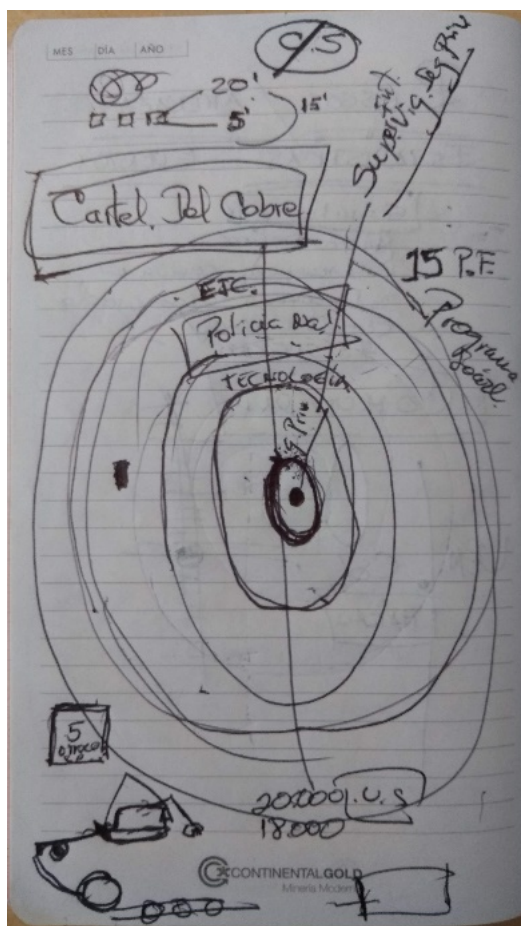 MES DÍA AÑO
C.S
20'
15'
5'
Cartel Del Cobre
15 P.F
Programa
EJC.
Policia Nal
TECNOLOGIA
ig. Priv
5
20.000 U.S
18.000
CONTINENTALGOLD
Minería Moderna